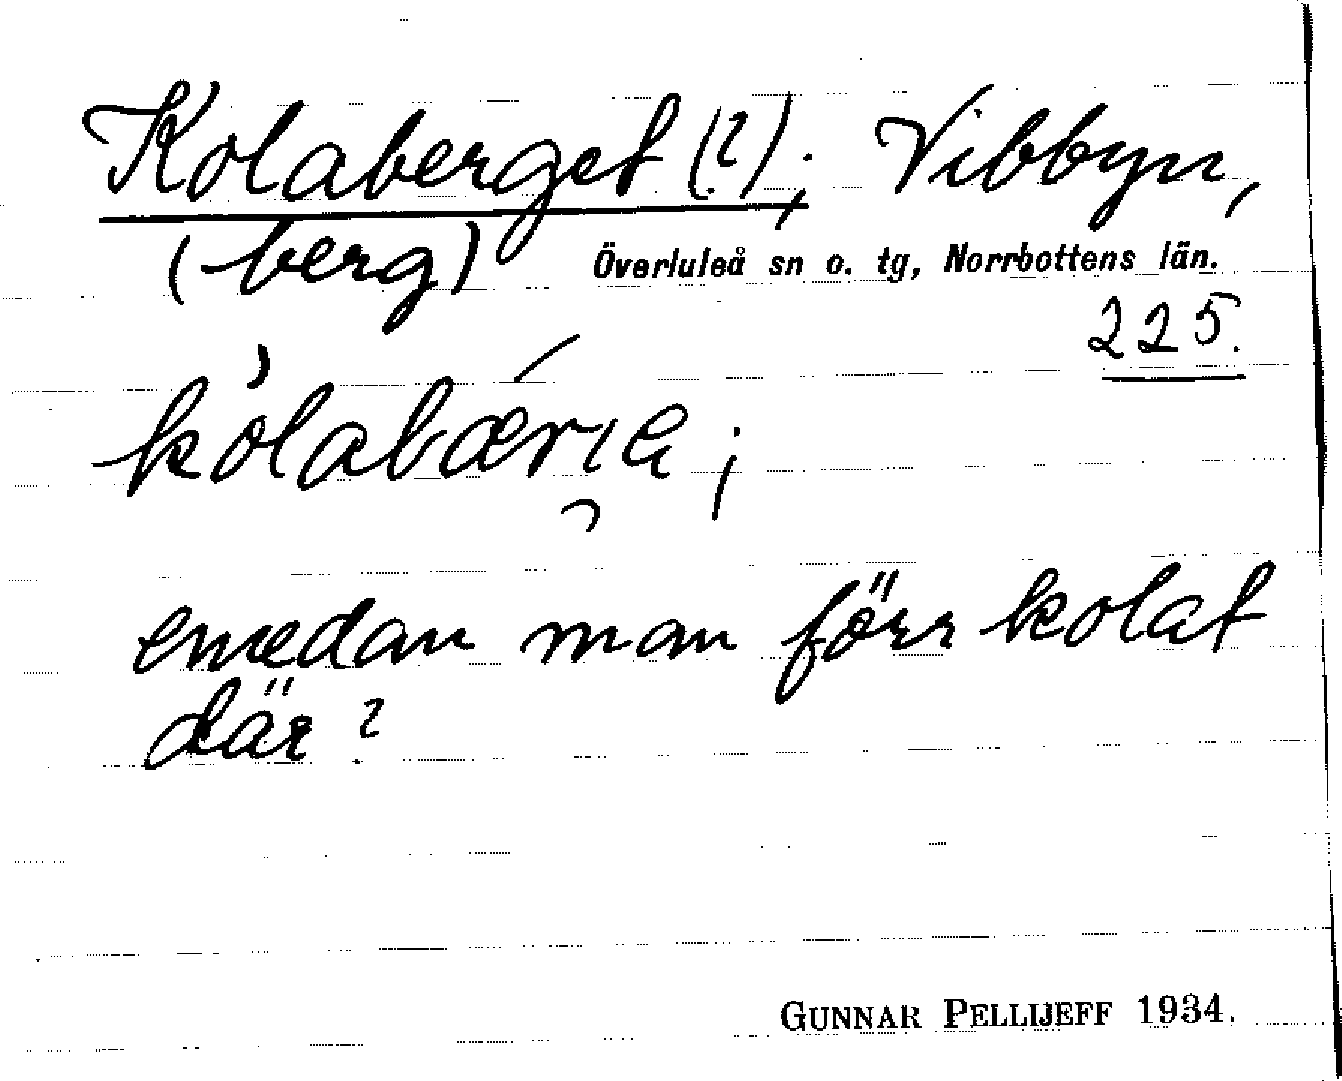 Kolaberget (?); Vibbyn,
(berg) Överluleå sn o. tg, Norrbottens län.
225.
kólabærɩe;
emedan man förr kolat
där?
GUNNAR PELLIJEFF 1934.